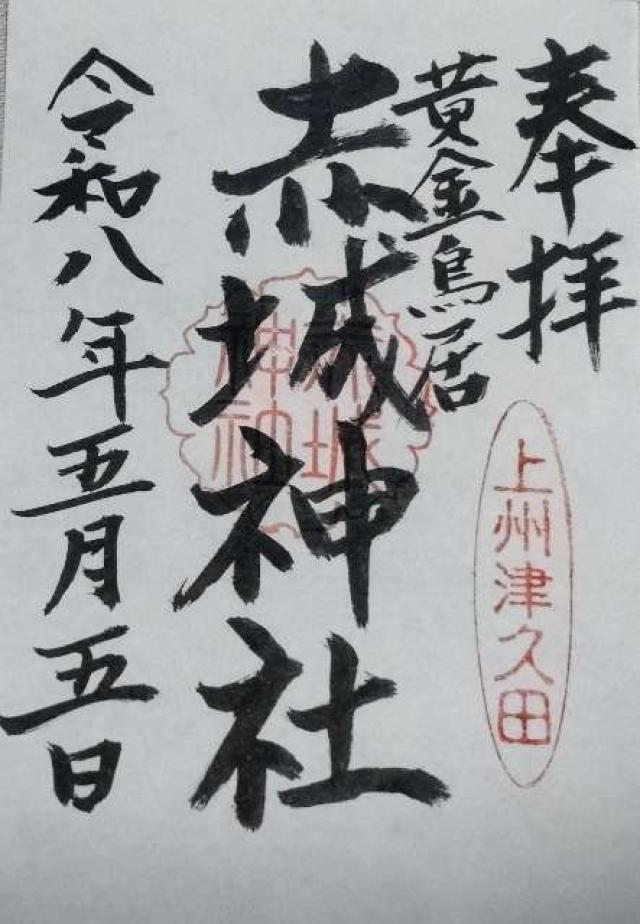 奉拝
上州津久田
黄金鳥居
赤城神社
赤城
神社
令和八年五月五日